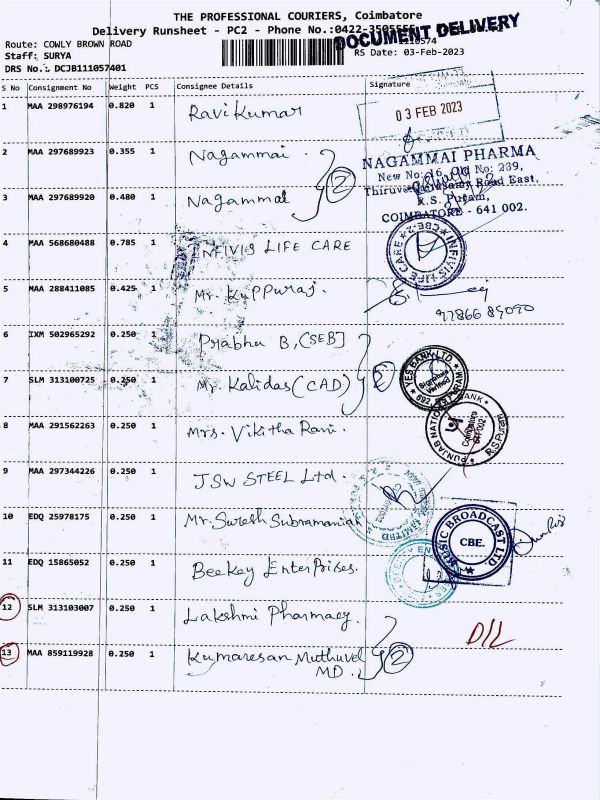 THE PROFESSIONAL COURIERS, Coimbatore
Delivery Runsheet - PC2 - Phone No.:0422-3505555
DOCUMENT DELIVERY
Route: COWLY BROWN ROAD
1110574
Staff: SURYA
RS Date: 03-Feb-2023
DRS No.: DCJB111057401
S No Consignment No Weight PCS Consignee Details Signature
1 MAA 298976194 0.820 1 Ravi Kumar
03 FEB 2023
2 MAA 297689923 0.355 1 Nagammai
NAGAMMAI PHARMA
New No:16, Old No: 239,
2
3 MAA 297689920 0.480 1 Nagammai
Road East,
R.S. Puram,
COIMBATORE - 641 002.
4 MAA 568680488 0.785 1 INFIVIS LIFE CARE
INFIVIS LIFE CARE CBE-2
5 MAA 288411085 0.425 1 Mr. Kuppuraj.
92866 89090
6 IXM 502965292 0.250 1 Prabhu B, (SEB)
YES BANK LTD.
Signature Verified
2
7 SLM 313100725 0.250 1 Mr. Kalidas (CAD)
PUNJAB NATIONAL BANK
Coimbatore
641002
R.S.Puram
8 MAA 291562263 0.250 1 Mrs. Vikitha Rani.
9 MAA 297344226 0.250 1 JSW STEEL Ltd.
10 EDQ 25978175 0.250 1 Mr. Suresh Subramanian
MUSIC BROADCAST LTD.
CBE.
11 EDQ 15865052 0.250 1 Beekey Enterprises.
12 SLM 313103007 0.250 1 Lakshmi Pharmacy.
D/L
13 MAA 859119928 0.250 1 Kumaresan Muthuvel
MD.
2